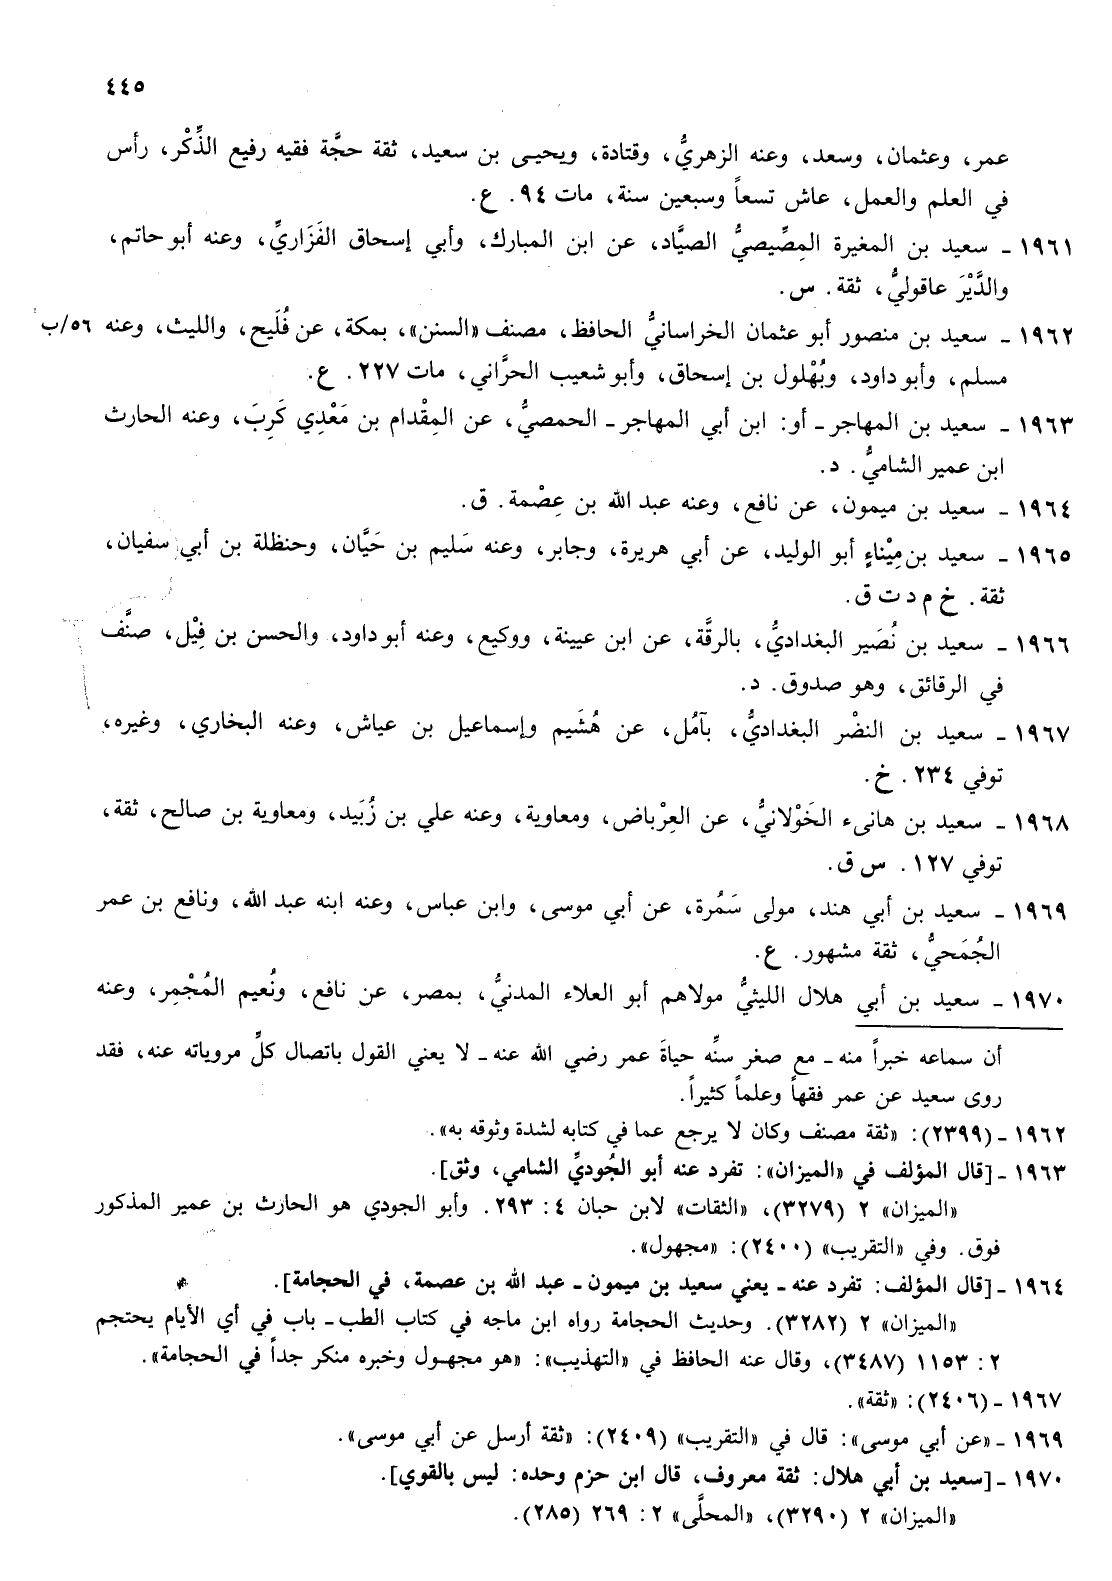 ٤٤٥
عمر، وعثمان، وسعد، وعنه الزهريُّ، وقتادة، ويحيـى بن سعيد، ثقة حجَّة فقيه رفيع الذِّكْر، رأس
في العلم والعمل، عاش تسعاً وسبعين سنة، مات ٩٤. ع.
١٩٦١ ـ سعيد بن المغيرة المِصِّيصيُّ الصيَّاد، عن ابن المبارك، وأبي إسحاق الفَزَاريِّ، وعنه أبو حاتم،
والدَّيْرَ عاقوليُّ، ثقة. س.
١٩٦٢ ـ سعيد بن منصور أبو عثمان الخراسانيُّ الحافظ، مصنف «السنن»، بمكة، عن فُلَيح، والليث، وعنه ٥٦/ب
مسلم، وأبو داود، وبُهْلول بن إسحاق، وأبو شعيب الحرَّاني، مات ٢٢٧. ع.
١٩٦٣ ـ سعيد بن المهاجر ـ أو: ابن أبي المهاجر ـ الحمصيُّ، عن المِقْدام بن مَعْدِي كَرِبَ، وعنه الحارث
ابن عمير الشاميُّ. د.
١٩٦٤ ـ سعيد بن ميمون، عن نافع، وعنه عبد الله بن عِصْمة. ق.
١٩٦٥ ـ سعيد بن مِيْناءٍ أبو الوليد، عن أبي هريرة، وجابر، وعنه سَليم بن حَيَّان، وحنظلة بن أبي سفيان،
ثقة. خ م د ت ق.
١٩٦٦ ـ سعيد بن نُصَير البغداديُّ، بالرقَّة، عن ابن عيينة، ووكيع، وعنه أبو داود، والحسن بن فِيْل، صنَّف
في الرقائق، وهو صدوق. د.
١٩٦٧ ـ سعيد بن النضْر البغداديُّ، بآمُل، عن هُشَيم وإسماعيل بن عياش، وعنه البخاري، وغيره،
توفي ٢٣٤. خ.
١٩٦٨ ـ سعيد بن هانىء الخَوْلانيُّ، عن العِرْباض، ومعاوية، وعنه علي بن زُبَيد، ومعاوية بن صالح، ثقة،
توفي ١٢٧. س ق.
١٩٦٩ ـ سعيد بن أبي هند، مولى سَمُرة، عن أبي موسى، وابن عباس، وعنه ابنه عبد الله، ونافع بن عمر
الجُمَحيُّ، ثقة مشهور. ع.
١٩٧٠ ـ سعيد بن أبي هلال الليثيُّ مولاهم أبو العلاء المدنيُّ، بمصر، عن نافع، ونُعيم المُجْمِر، وعنه
أن سماعه خبراً منه ـ مع صغر سنِّه حياةَ عمر رضي الله عنه ـ لا يعني القول باتصال كلِّ مروياته عنه، فقد
روى سعيد عن عمر فقهاً وعلماً كثيراً.
١٩٦٢ ـ (٢٣٩٩): «ثقة مصنف وكان لا يرجع عما في كتابه لشدة وثوقه به».
١٩٦٣ ـ [قال المؤلف في «الميزان»: تفرد عنه أبو الجُوديِّ الشامي، وثق].
«الميزان» ٢ (٣٢٧٩)، «الثقات» لابن حبان ٤: ٢٩٣. وأبو الجودي هو الحارث بن عمير المذكور
فوق. وفي «التقريب» (٢٤٠٠): «مجهول».
١٩٦٤ ـ [قال المؤلف: تفرد عنه ـ يعني سعيد بن ميمون ـ عبد الله بن عصمة، في الحجامة].
«الميزان» ٢ (٣٢٨٢). وحديث الحجامة رواه ابن ماجه في كتاب الطب ـ باب في أي الأيام يحتجم
٢: ١١٥٣ (٣٤٨٧)، وقال عنه الحافظ في «التهذيب»: «هو مجهول وخبره منكر جداً في الحجامة».
١٩٦٧ ـ (٢٤٠٦): «ثقة».
١٩٦٩ ـ «عن أبي موسى»: قال في «التقريب» (٢٤٠٩): «ثقة أرسل عن أبي موسى».
١٩٧٠ ـ [سعيد بن أبي هلال: ثقة معروف، قال ابن حزم وحده: ليس بالقوي].
«الميزان» ٢ (٣٢٩٠)، «المحلَّى» ٢: ٢٦٩ (٢٨٥).